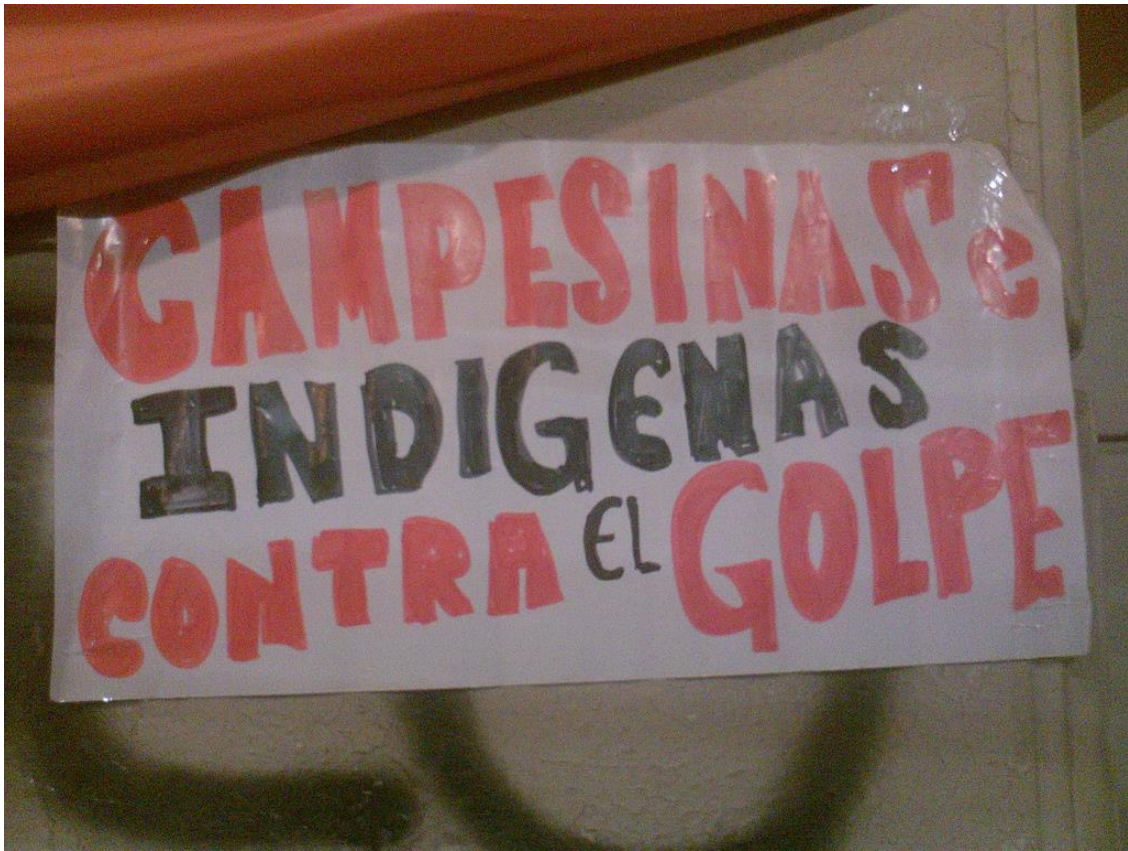 CAMPESINAS e
INDIGENAS
CONTRA EL GOLPE